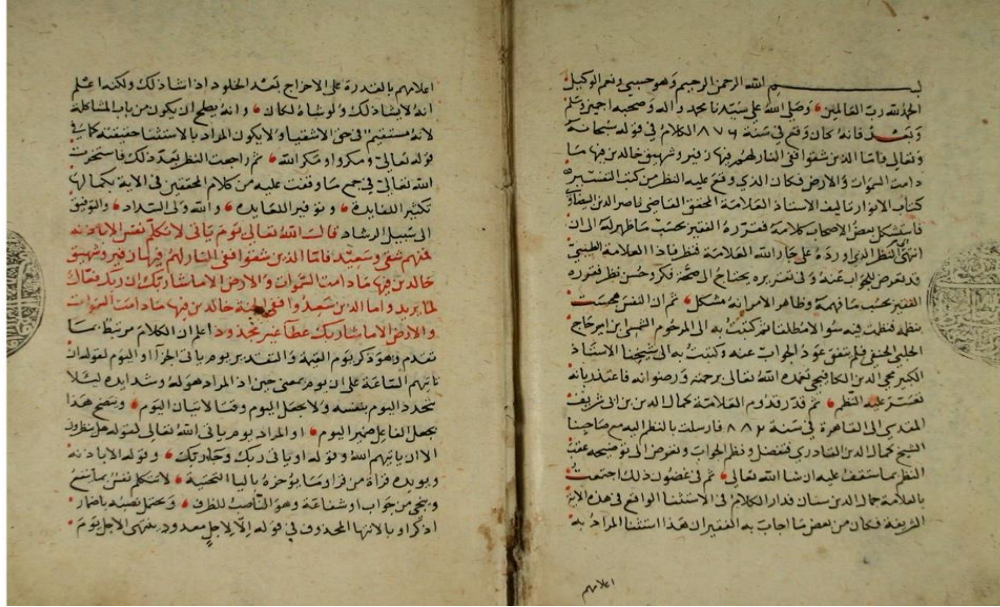 بسم الله الرحمن الرحيم وهو حسبي ونعم الوكيل
الحمد لله رب العالمين وصلى الله على سيدنا محمد وآله وصحبه اجمعين وسلم
وبعد فانه كان وقع في سنة ٨٧٦ الكلام في قوله سبحانه
وتعالى فاما الذين شقوا ففي النار لهم فيها زفير وشهيق خالدين فيها ما
دامت السموات والارض فكان الذي وقع عليه النظر من كتب التفسير
كتاب الانوار تاليف الاستاذ العلامة المحقق القاضي ناصر الدين البيضاوي
فاستشكل بعض الاصحاب كلامه فقرره الفقير بحسب ما ظهر له الى ان
انتهى النظر الذي ورده على جار الله العلامة فنظر فاذا العلامة الطيبي
قد تعرض للجواب عنه وفي تقريره يحتاج الى صحة فكر وحسن نظر فقرره
الفقير بحسب ما فهمه وظاهر الامر انه مشكل ثم ان النفس
بنظمه فنظمت فيه سؤالا كتبت به الى المرحوم الشمس ابن امير حاج
الحلبي الحنفي فلم يتفق عود الجواب عنه وكتبت به الى شيخنا الاستاذ
الكبير محيي الدين الكافيجي تغمده الله تعالى برحمته ورضوانه فاعتذر بانه
تعسر عليه النظم ثم قدر قدوم العلامة كمال الدين بن ابي شريف
المقدسي الى القاهرة في سنة ٨٨٢ فارسلت بالنظر اليه مع صاحبنا
الشيخ كمال الدين القادري فتفضل ونظم الجواب وتعرض الى توضيحه عقب
النظم بما ستقف عليه ان شا الله تعالى ثم في غضون ذلك اجتمعت
بالعلامة جمال الدين سنان فدار الكلام في الاستثنا الواقع في هذه الاية
الشريفة فكان من بعض ما اجاب به الفقير ان هذا استثنا المراد به
اعلامهم
اعلامهم بالقدرة على الاخراج بعد الخلود اذ انشا ذلك ولكنه اعلم
انه لا يشا ذلك ولو شاه لكان وانه يصلح ان يكون من باب المشاكلة
لانه مستقيم في حق الاشقيا ولا يكون المراد بالاستثنا حقيقته كما في
قوله تعالى ومكروا ومكر الله ثم راجعت النظر بعد ذلك فاستخرت
الله تعالى في جمع ما وقفت عليه من كلام المحققين في الاية بكمالها
تكثير للفايدة وتوفير للعايدة والله ولي السداد والتوفيق
الى سبيل الرشاد قال الله تعالى يوم ياتي لا تكلم نفس الا باذنه
فمنهم شقي وسعيد فاما الذين شقوا ففي النار لهم فيها زفير وشهيق
خالدين فيها ما دامت السموات والارض الا ما شا ربك ان ربك فعال
لما يريد واما الذين سعدوا ففي الجنة خالدين فيها ما دامت السموات
والارض الا ما شا ربك عطا غير مجذوذ اعلم ان الكلام مرتبط بما
تقدم وهو ذكر يوم القيمة والتقدير يوم ياتي الجزا او اليوم لقوله ان
تاتيهم الساعة على ان يوم بمعنى حين اذ المراد هوله وشدايده ليلا
يتحدد اليوم بنفسه ولا يجعل اليوم وقتا لاتيان اليوم ويتضح هذا
بجعل الفاعل ضمير اليوم او المراد يوم ياتي الله تعالى لقوله هل ينظرون
الا ان ياتيهم الله وقوله او ياتي ربك وجا ربك وقوله الا باذنه
ويويده قراة من قرا وما يؤخره باليا التحتية لا تكلم نفس بما ينفع
وينجي من جواب او شفاعة وهو الناصب للظرف ويحتمل نصبه باضمار
اذكر او بالانتها المحذوف في قوله الا لاجل معدود ينتهى الاجل يوم